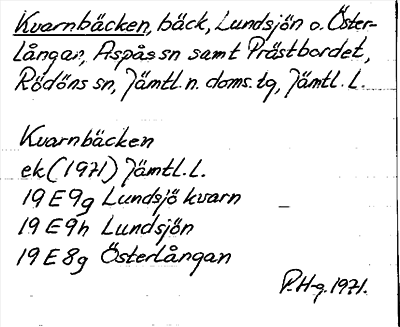 Kvarnbäcken, bäck, Lundsjön o. Öster-
Långan, Aspås sn samt Prästbordet,
Rödöns sn, Jämtl. n. doms. tg, Jämtl. L.
Kvarnbäcken
ek (1971) Jämtl. L.
19 E 9g Lundsjö kvarn
19 E 9h Lundsjön
19 E 8g Österlångan
P. H-g. 1971.